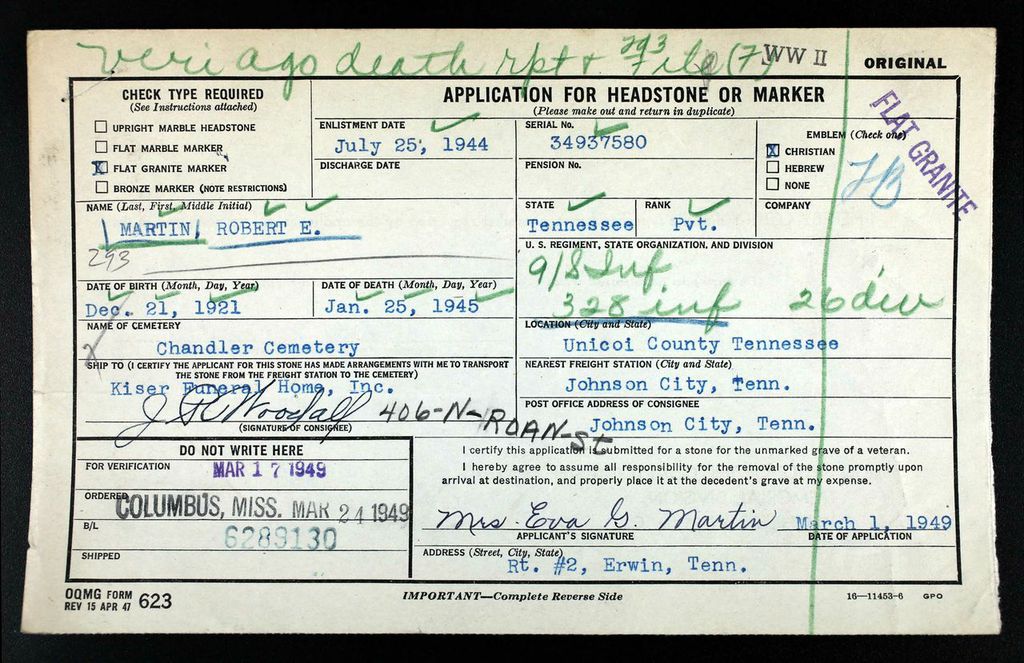 veri ago death rpt + 293 File (7) WW II
ORIGINAL
CHECK TYPE REQUIRED
(See Instructions attached)
UPRIGHT MARBLE HEADSTONE
FLAT MARBLE MARKER
X FLAT GRANITE MARKER
BRONZE MARKER (NOTE RESTRICTIONS)
APPLICATION FOR HEADSTONE OR MARKER
(Please make out and return in duplicate)
ENLISTMENT DATE
July 25, 1944
DISCHARGE DATE
SERIAL No.
34937580
PENSION No.
EMBLEM (Check one)
X CHRISTIAN
HEBREW
NONE
FLAT GRANITE
NAME (Last, First, Middle Initial)
MARTIN, ROBERT E.
293
STATE
Tennessee
RANK
Pvt.
COMPANY
U. S. REGIMENT, STATE ORGANIZATION, AND DIVISION
9/8 Inf
328 inf 26 div
DATE OF BIRTH (Month, Day, Year)
Dec. 21, 1921
DATE OF DEATH (Month, Day, Year)
Jan. 25, 1945
NAME OF CEMETERY
Chandler Cemetery
LOCATION (City and State)
Unicoi County Tennessee
SHIP TO (I CERTIFY THE APPLICANT FOR THIS STONE HAS MADE ARRANGEMENTS WITH ME TO TRANSPORT
THE STONE FROM THE FREIGHT STATION TO THE CEMETERY)
Kiser Funeral Home, Inc.
J R Woodall 406-N-ROAN-St
(SIGNATURE OF CONSIGNEE)
NEAREST FREIGHT STATION (City and State)
Johnson City, Tenn.
POST OFFICE ADDRESS OF CONSIGNEE
Johnson City, Tenn.
DO NOT WRITE HERE
FOR VERIFICATION
MAR 17 1949
ORDERED
COLUMBUS, MISS. MAR 24 1949
B/L
6289130
SHIPPED
I certify this application is submitted for a stone for the unmarked grave of a veteran.
I hereby agree to assume all responsibility for the removal of the stone promptly upon
arrival at destination, and properly place it at the decedent's grave at my expense.
Mrs. Eva G. Martin March 1, 1949
APPLICANT'S SIGNATURE DATE OF APPLICATION
ADDRESS (Street, City, State)
Rt. #2, Erwin, Tenn.
OQMG FORM
REV 15 APR 47 623
IMPORTANT—Complete Reverse Side
16—11453-6 GPO